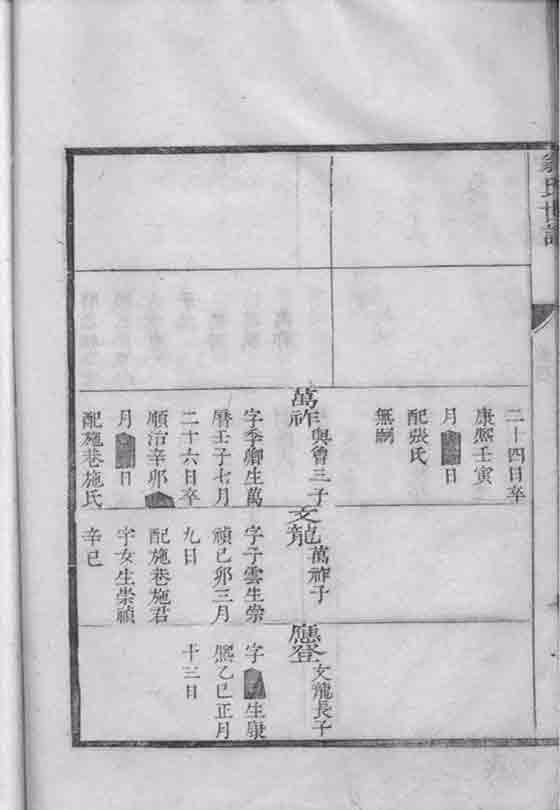 氏世譜
二十四日卒
康熙壬寅
月日
配張氏
無嗣
萬祚
興曾三子
字季卿生萬
曆壬子七月
二十六日卒
順治辛卯
月日
配施巷施氏
文龍
萬祚子
字子雲生崇
禎己卯三月
九日
配施巷施君
宇女生崇禎
辛巳
應登
文龍長子
字生康
熙乙巳正月
十三日